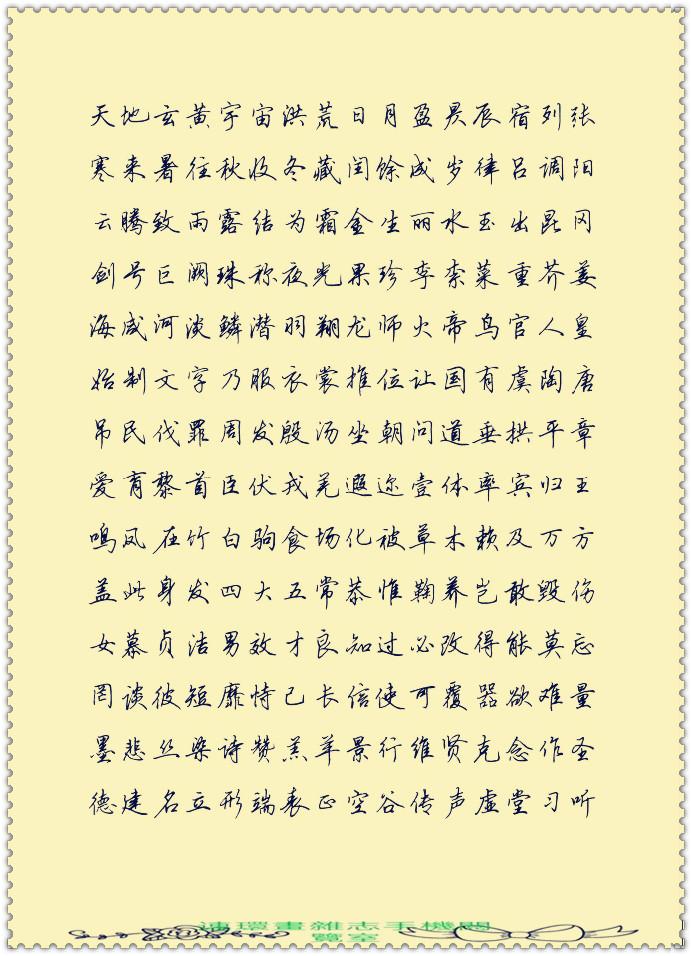 天地玄黄宇宙洪荒日月盈昃辰宿列张
寒来暑往秋收冬藏闰馀成岁律吕调阳
云腾致雨露结为霜金生丽水玉出昆冈
剑号巨阙珠称夜光果珍李柰菜重芥姜
海咸河淡鳞潜羽翔龙师火帝鸟官人皇
始制文字乃服衣裳推位让国有虞陶唐
吊民伐罪周发殷汤坐朝问道垂拱平章
爱育黎首臣伏戎羌遐迩壹体率宾归王
鸣凤在竹白驹食场化被草木赖及万方
盖此身发四大五常恭惟鞠养岂敢毁伤
女慕贞洁男效才良知过必改得能莫忘
罔谈彼短靡恃己长信使可覆器欲难量
墨悲丝染诗赞羔羊景行维贤克念作圣
德建名立形端表正空谷传声虚堂习听
連環畫雜志手機閱
覽室